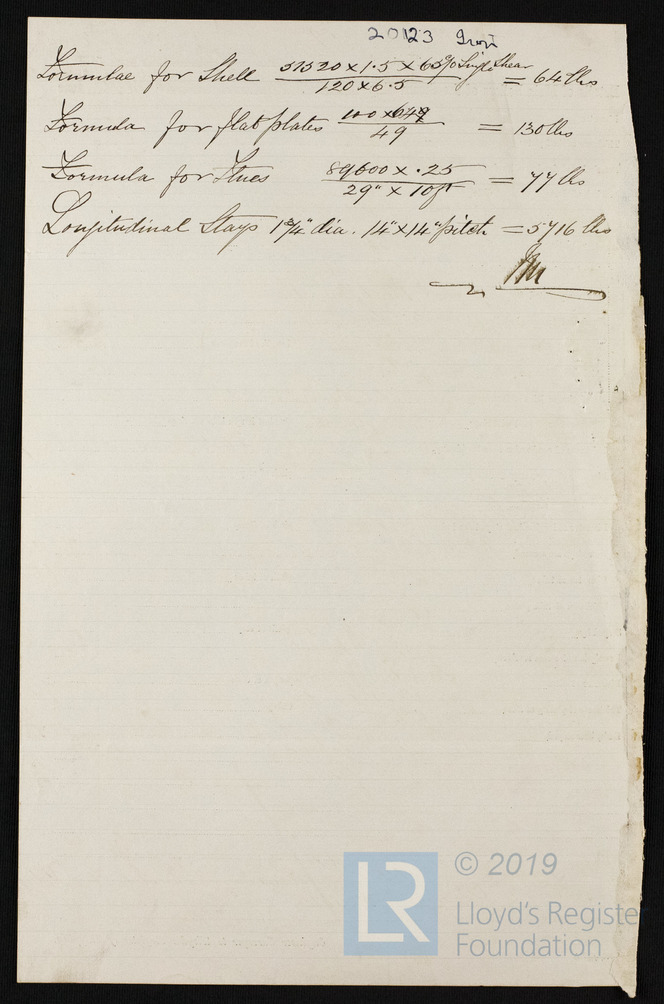 20123 Iron
Formulae for Shell 51520 x 1.5 x 65% Single Shear / 120 x 6.5 = 64 lbs
Formula for flat plates 100 x 64 / 49 = 130 lbs
Formula for Flues 89600 x .25 / 29" x 10ft = 77 lbs
Longitudinal Stays 1¾" dia. 14" x 14" pitch = 5716 lbs
LR
© 2019
Lloyd's Register
Foundation